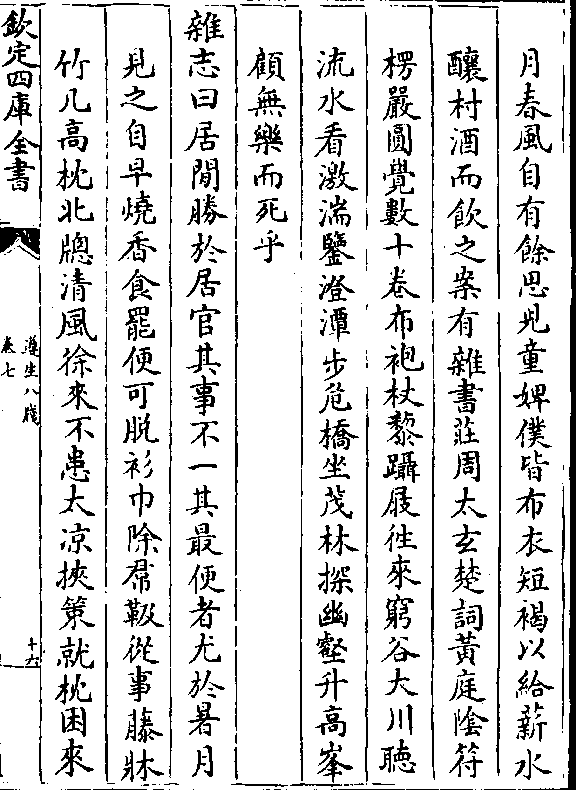 月春風自有餘思兒童婢僕皆布衣短褐以給薪水
釀村酒而飲之案有雜書莊周太玄楚詞黃庭陰符
楞嚴圓覺數十卷布袍杖藜躡屐徃來窮谷大川聽
流水看激湍鑒澄潭步危橋坐茂林探幽壑升高峯
顧無樂而死乎
雜志曰居閒勝於居官其事不一其最便者尤於暑月
見之自早燒香食罷便可脫衫巾除帬靸從事藤牀
竹几高枕北牕清風徐來不患太凉挾策就枕困來
欽定四庫全書
遵生八牋
卷七
十六